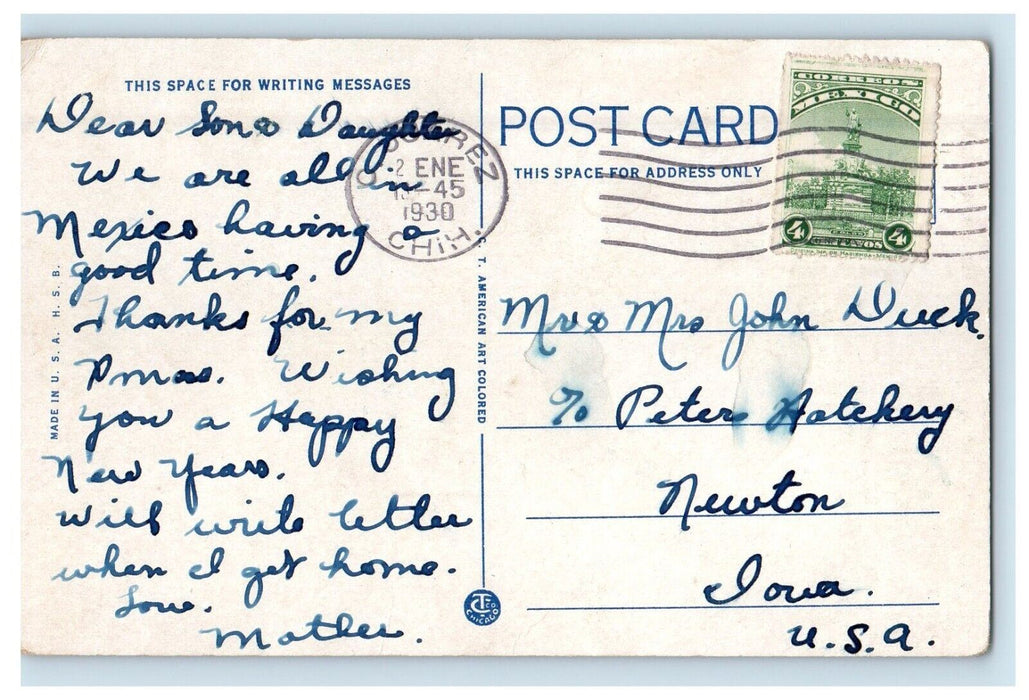 THIS SPACE FOR WRITING MESSAGES
Dear Son & Daughter
We are all in
Mexico having a
good time.
Thanks for my
Xmas. Wishing
you a Happy
New Years.
Will write letter
when I get home.
Love.
Mother.
MADE IN U. S. A. H. S. B.
C. T. AMERICAN ART COLORED
POST CARD
THIS SPACE FOR ADDRESS ONLY
JUAREZ
2 ENE
45
1930
CHIH.
CORREOS
MEXICO
4 CENTAVOS 4
Mr & Mrs John Duck.
% Peters Hatchery
Newton
Iowa.
U.S.A.
CT CO.
CHICAGO